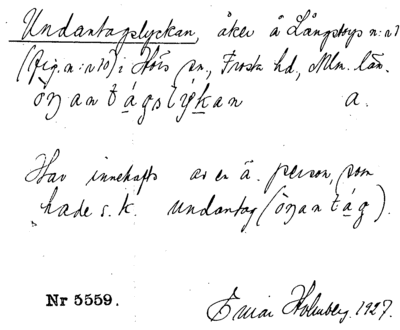 Undantagslyckan, åker å Långstorps n:r 7
(fig. n:r 10) i Hörs sn., Frosta hd, Mlm. län.
a.
Har innehafts av en ä. person, som
hade s. k. undantag
Nr 5559.
Holmberg. 1927.